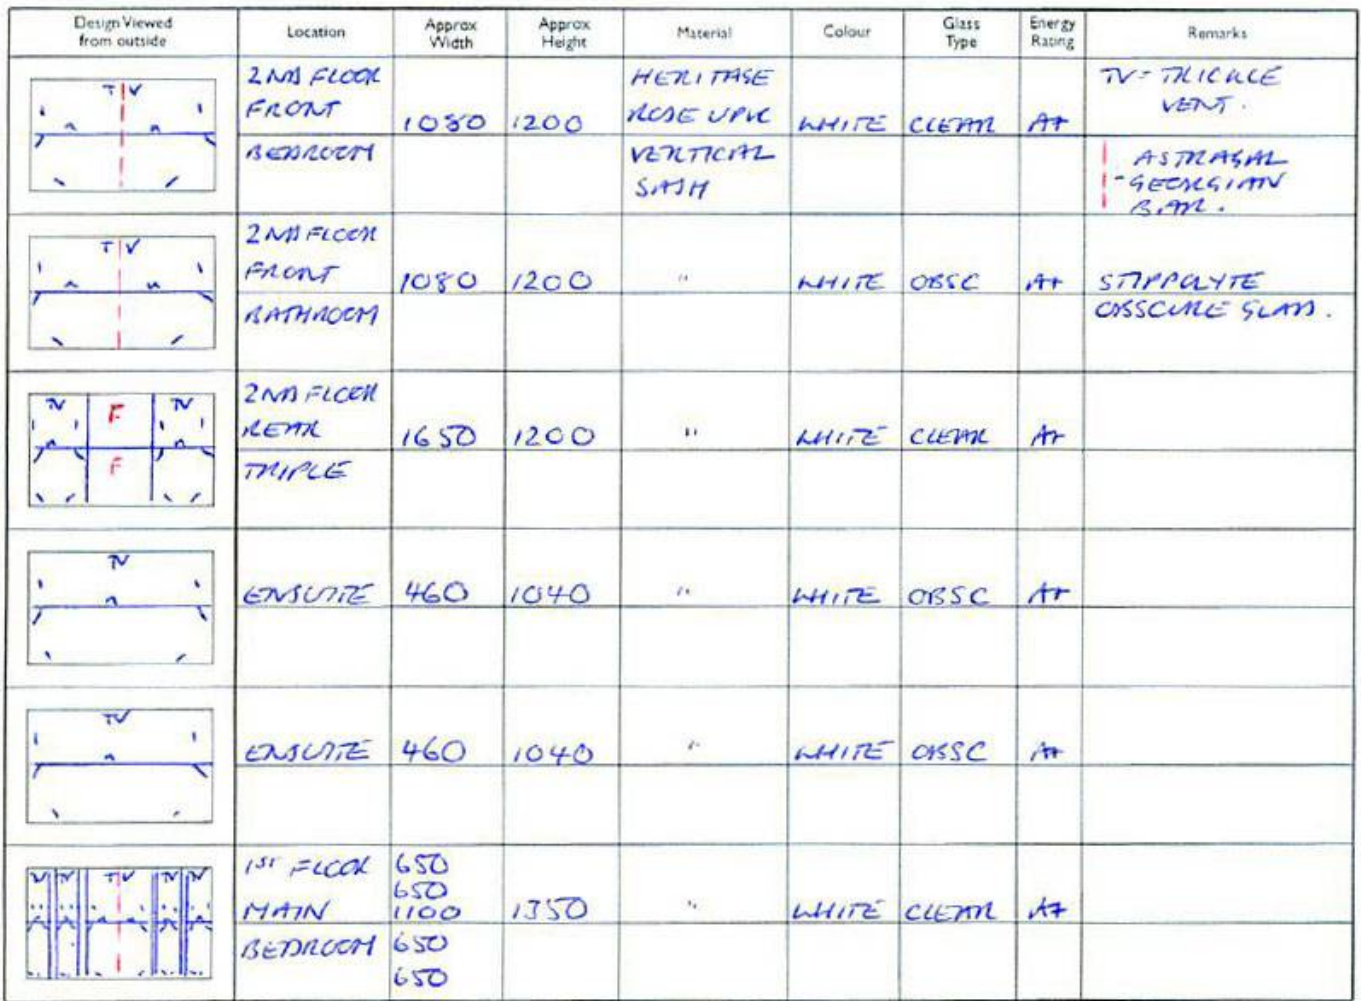 Design Viewed from outside | Location | Approx Width | Approx Height | Material | Colour | Glass Type | Energy Rating | Remarks
T V | 2ND FLOOR FRONT BEDROOM | 1080 | 1200 | HERITAGE ROSE UPVC VERTICAL SASH | WHITE | CLEAR | A+ | TV = TRICKLE VENT. ASTRAGAL - GEORGIAN BAR.
T V | 2ND FLOOR FRONT BATHROOM | 1080 | 1200 | " | WHITE | OBSC | A+ | STIPPOLYTE OBSCURE GLASS.
TV F TV F | 2ND FLOOR REAR TRIPLE | 1650 | 1200 | " | WHITE | CLEAR | A+
TV | ENSUITE | 460 | 1040 | " | WHITE | OBSC | A+
TV | ENSUITE | 460 | 1040 | " | WHITE | OBSC | A+
TV TV TV TV TV | 1ST FLOOR MAIN BEDROOM | 650 650 1100 650 650 | 1350 | " | WHITE | CLEAR | A+